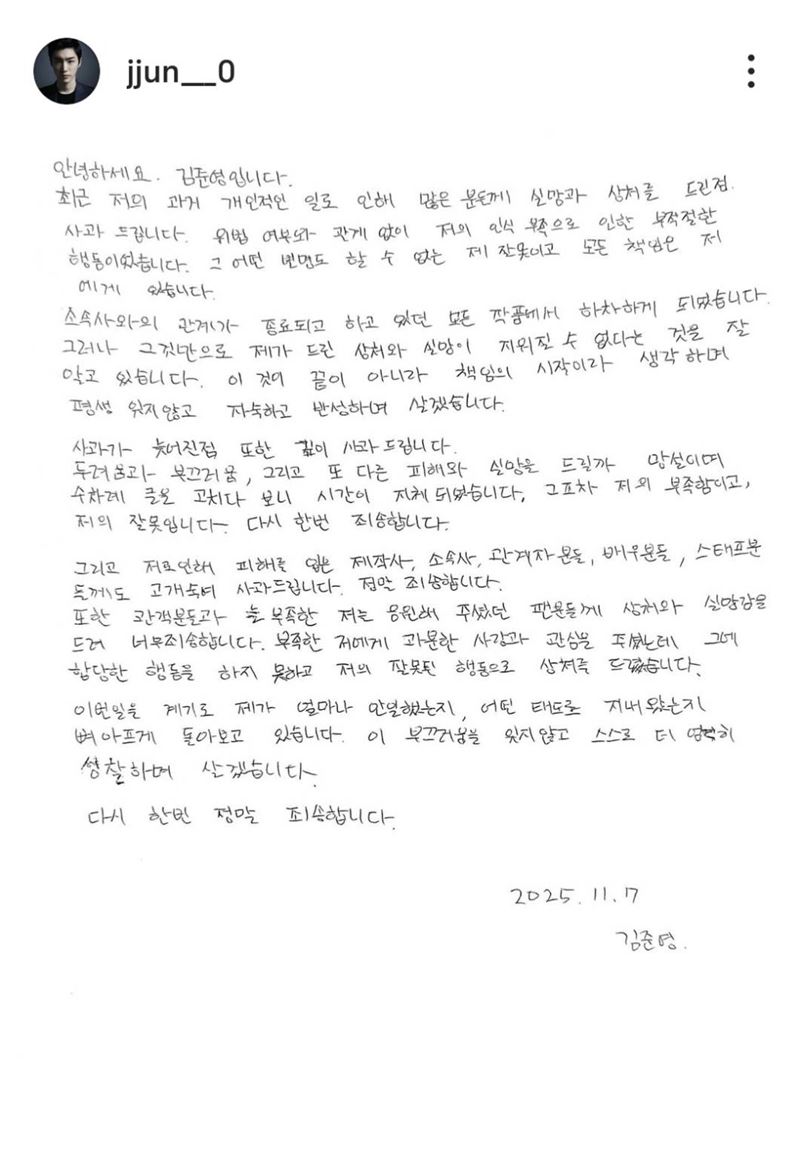 jjun__0
안녕하세요. 김준영입니다.
최근 저의 과거 개인적인 일로 인해 많은 분들께 실망과 상처를 드린점
사과 드립니다. 위법 여부와 관계 없이 저의 인식 부족으로 인한 부적절한
행동이었습니다. 그 어떤 변명도 할 수 없는 제 잘못이고 모든 책임은 저
에게 있습니다.
소속사와의 관계가 종료되고 하고 있던 모든 작품에서 하차하게 되었습니다.
그러나 그것만으로 제가 드린 상처와 실망이 지워질 수 없다는 것을 잘
알고 있습니다. 이 것이 끝이 아니라 책임의 시작이라 생각하며
평생 잊지않고 자숙하고 반성하며 살겠습니다.
사과가 늦어진점 또한 깊이 사과드립니다.
두려움과 부끄러움, 그리고 또 다른 피해와 실망을 드릴까 망설이며
수차례 글을 고치다 보니 시간이 지체 되었습니다. 그조차 저의 부족함이고,
저의 잘못입니다. 다시 한번 죄송합니다.
그리고 저로인해 피해를 입은 제작사, 소속사, 관계자분들, 배우분들, 스태프분
들께도 고개숙여 사과드립니다. 정말 죄송합니다.
또한 관객분들과 늘 부족한 저를 응원해 주셨던 팬분들께 상처와 실망감을
드려 너무죄송합니다. 부족한 저에게 과분한 사랑과 관심을 주셨는데 그에
합당한 행동을 하지 못하고 저의 잘못된 행동으로 상처를 드렸습니다.
이번일을 계기로 제가 얼마나 안일했는지, 어떤 태도로 지내왔는지
뼈아프게 돌아보고 있습니다. 이 부끄러움을 잊지않고 스스로 더 엄격히
성찰하며 살겠습니다.
다시 한번 정말 죄송합니다.
2025. 11. 17
김준영.